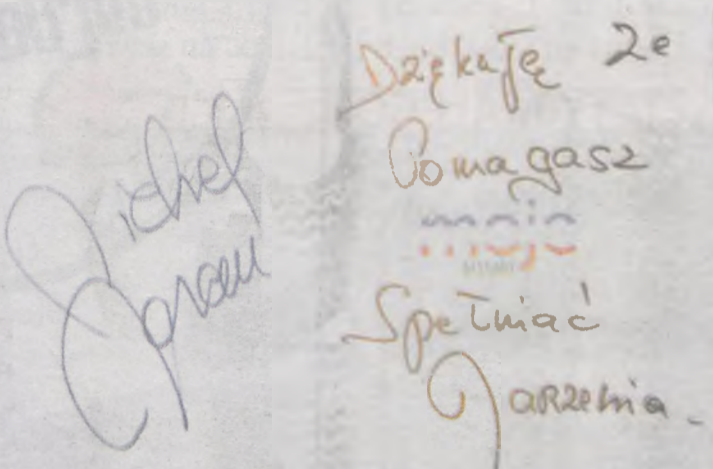 Michel
Moran
Dziękuję ze
Pomagasz
Spełniać
Marzenia.